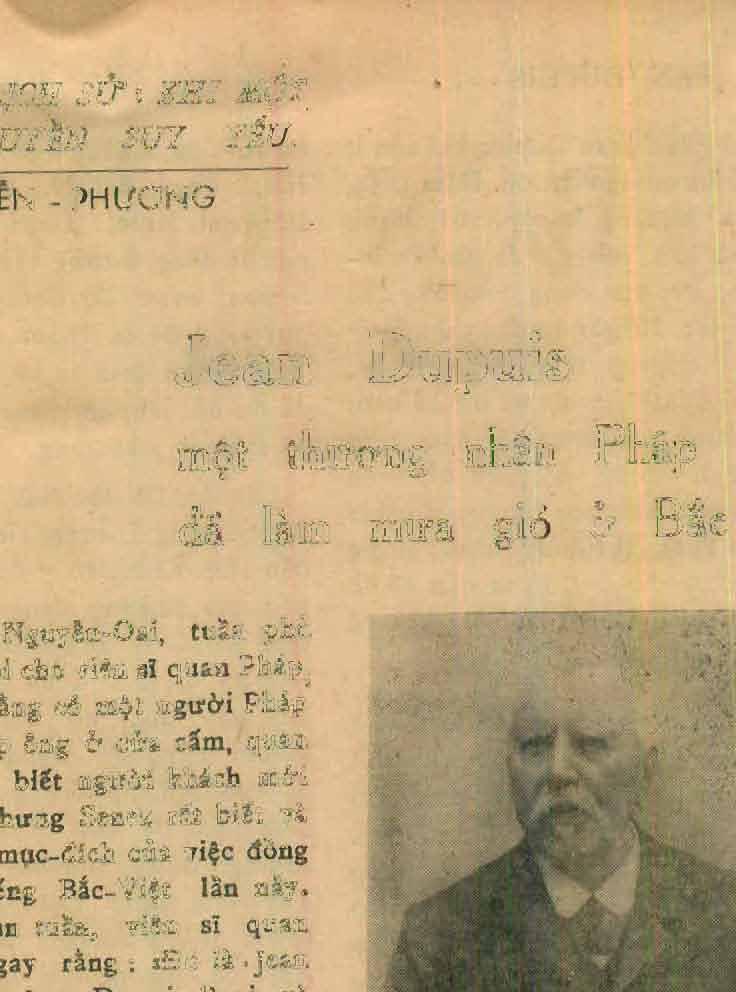 LỊCH SỬ : KHI MỘT
QUYỀN SUY YẾU.
ỄN - PHƯƠNG
Jean Dupuis
một thương nhân Pháp
đã làm mưa gió ở Bắc
Nguyễn-Oai, tuần phủ
i cho viên sĩ quan Pháp,
ằng có một người Pháp
p ông ở cửa cấm, quan
biết người khách mới
hưng Senez rất biết và
mục-đích của việc đồng
ếng Bắc-Việt lần này.
an tuần, viên sĩ quan
gay rằng : «Đó là Jean